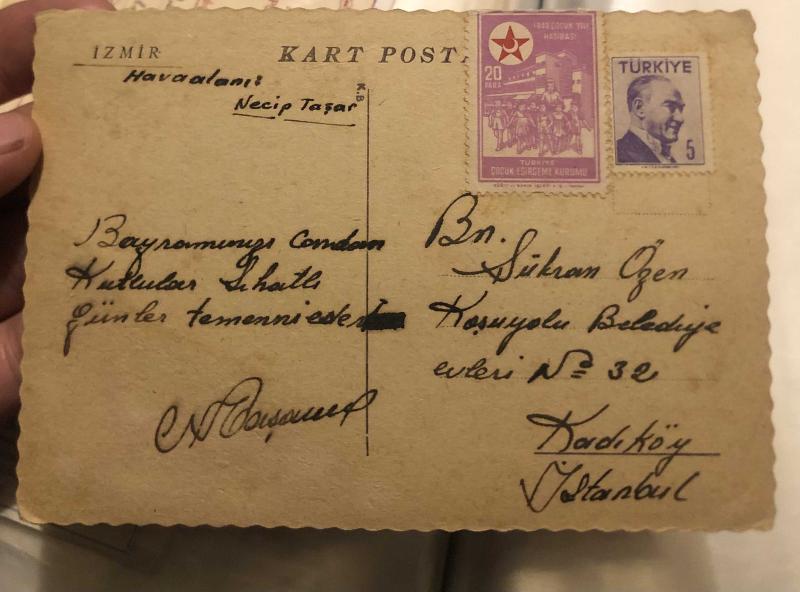 İZMİR
KART POSTA
Havaalanı
Necip Taşar
K.B
1943 ÇOCUK YILI
HATIRASI
20
PARA
TÜRKİYE
ÇOCUK ESİRGEME KURUMU
TÜRKİYE
5
Bayramınızı candan
Kutlular Sıhatlı
günler temenni eder
Bn.
Şükran Özen
Koşuyolu Belediye
evleri No 32
Kadıköy
İstanbul